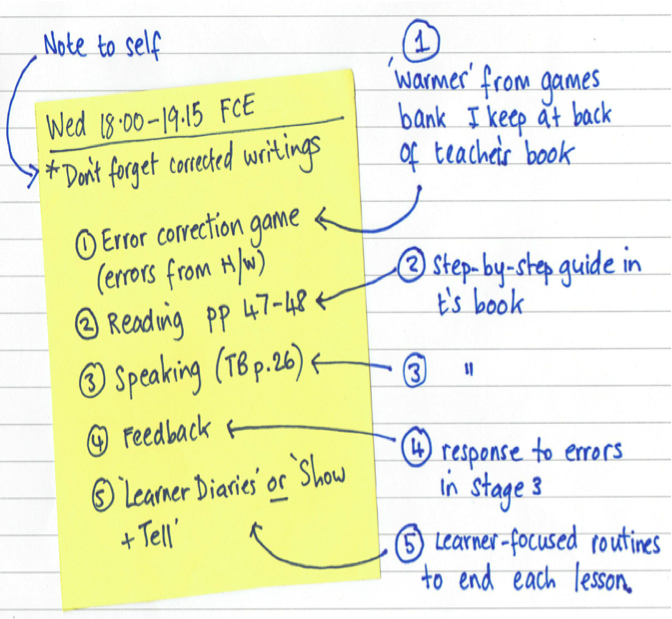 Note to self
Wed 18.00-19.15 FCE
*Don't forget corrected writings
① Error correction game
(errors from H/W)
② Reading pp 47-48
③ Speaking (TB p.26)
④ Feedback
⑤ 'Learner Diaries' or 'Show
+ Tell'
①
'Warmer' from games
bank I keep at back
of teacher's book
② Step-by-step guide in
t's book
③ "
④ response to errors
in Stage 3
⑤ Learner-focused routines
to end each lesson.